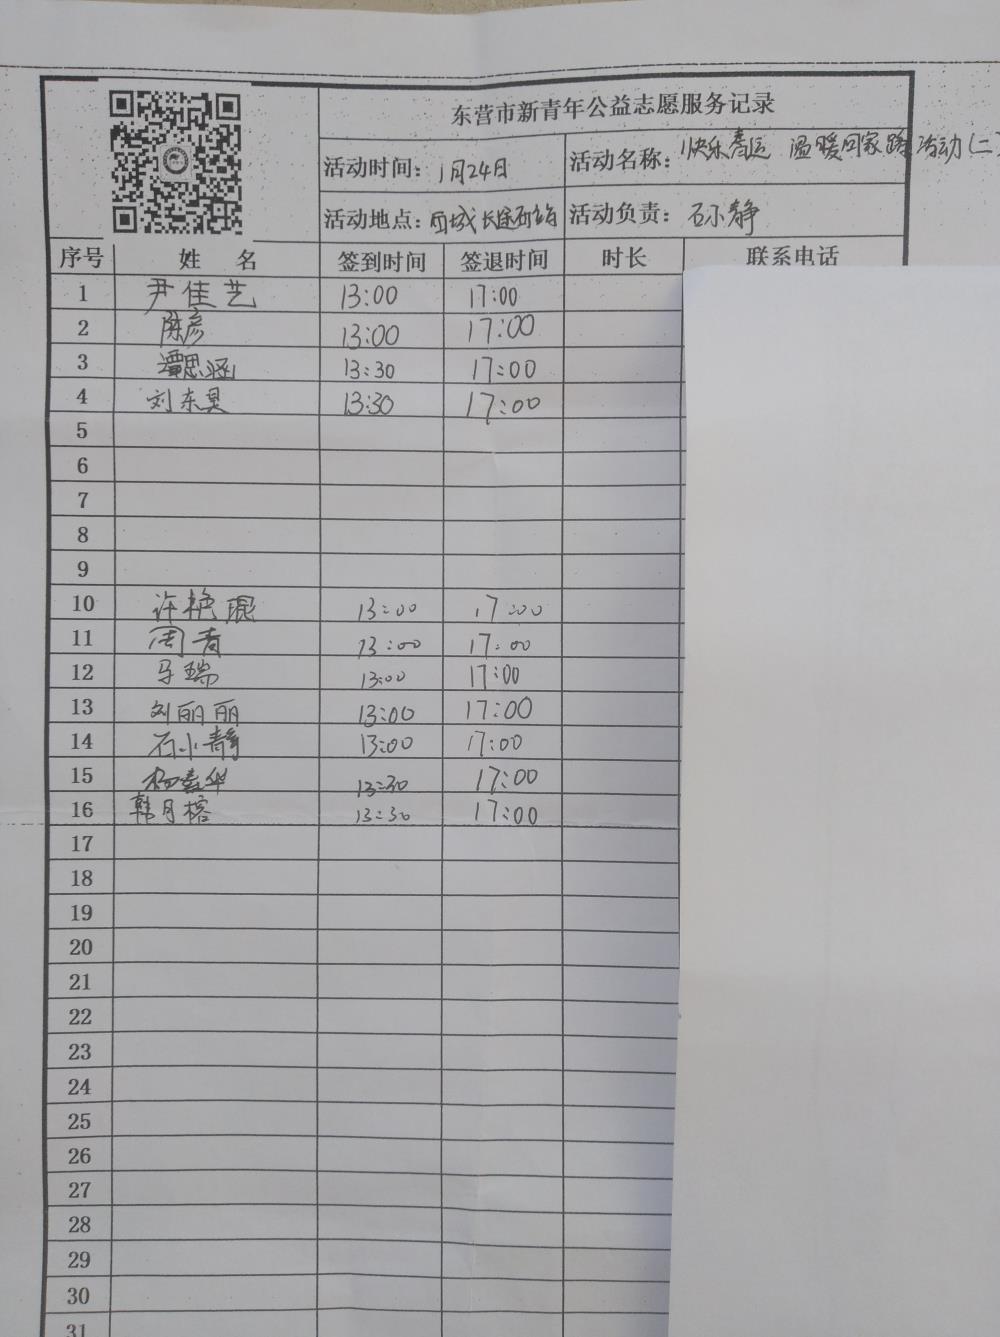 东营市新青年公益志愿服务记录
活动时间：1月24日 活动名称：快乐春运 温暖回家路 活动(二
活动地点：西城长途站 活动负责：石小静
序号 姓 名 签到时间 签退时间 时长 联系电话
1 尹佳艺 13:00 17:00
2 陈彦 13:00 17:00
3 谭思涵 13:30 17:00
4 刘东昊 13:30 17:00
5
6
7
8
9
10 许艳琨 13:00 17:00
11 周青 13:00 17:00
12 马瑞 13:00 17:00
13 刘丽丽 13:00 17:00
14 石小静 13:00 17:00
15 杨春华 13:30 17:00
16 韩月榕 13:30 17:00
17
18
19
20
21
22
23
24
25
26
27
28
29
30
31